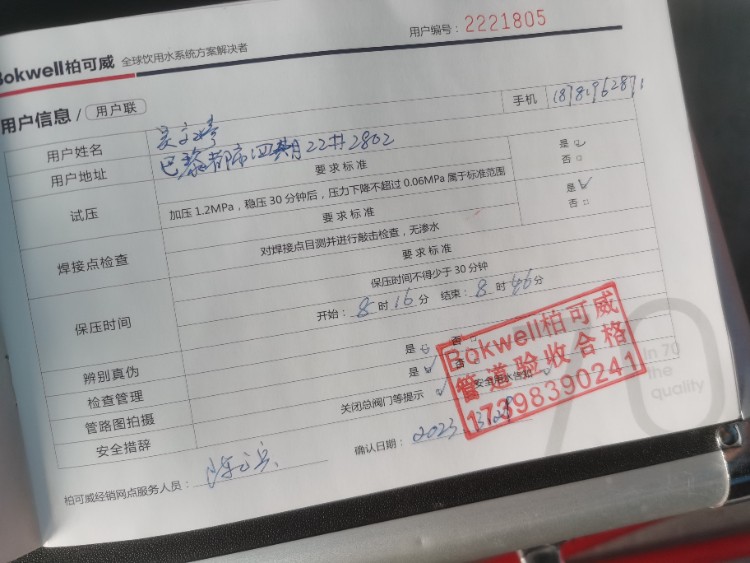 Bokwell柏可威 全球饮用水系统方案解决者
用户编号：2221805
用户信息 / 用户联
用户姓名 吴文 手机
用户地址 巴黎都市四期22#2802
试压 要求标准
加压1.2MPa，稳压30分钟后，压力下降不超过0.06MPa属于标准范围 是 否
焊接点检查 要求标准
对焊接点目测并进行敲击检查，无渗水 是 否
保压时间 要求标准
保压时间不得少于30分钟
开始：8时16分 结束：8时46分
辨别真伪 是 否
检查管理 是 否
管路图拍摄
安全措辞 关闭总阀门等提示 安全用水告知
Bokwell柏可威
管道验收合格
17398390241
70
in 70
the
quality
柏可威经销网点服务人员： 确认日期：2023